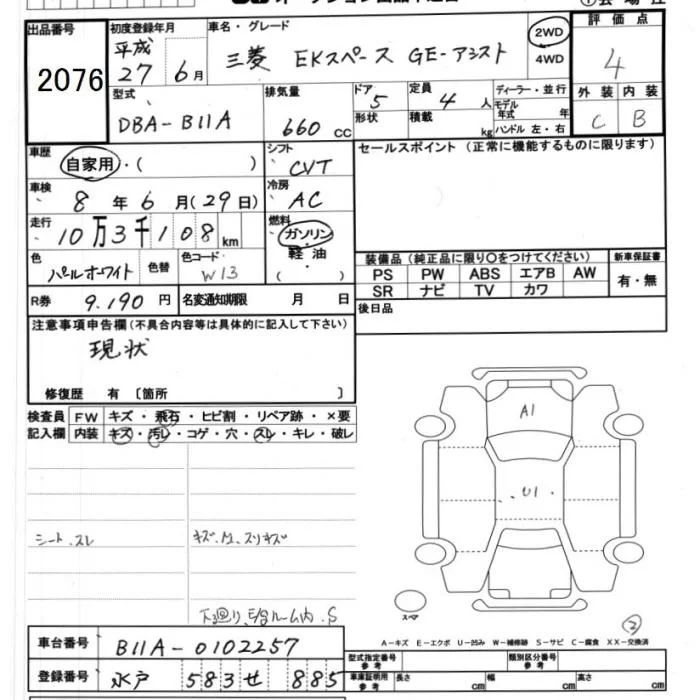 出品番号 2076
初度登録年月 平成 27年 6月
車名・グレード 三菱 EKスペース GE-アシスト
2WD 4WD
評価点 4
外装 C 内装 B
型式 DBA-B11A
排気量 660 CC
ドア 5 形状
定員 4 人 積載 kg
ディーラー・並行
モデル年式 年
ハンドル 左・右
車歴 自家用・( )
シフト CVT
セールスポイント(正常に機能するものに限ります)
車検 8年 6月(29日)
冷房 AC
走行 10万3千108km
燃料 ガソリン・軽油・( )
色 パールホワイト 色替 色コード W13
装備品(純正品に限り○をつけてください) 新車保証書
PS PW ABS エアB AW 有・無
SR ナビ TV カワ
R券 9.190円 名変通知期限 月 日
後日品
注意事項申告欄(不具合内容等は具体的に記入して下さい)
現状
修復歴 有〔箇所 〕
検査員 FW キズ・飛石・ヒビ割・リペア跡・×要
記入欄 内装 キズ・汚レ・コゲ・穴・スレ・キレ・破レ
A1
U1
シート.スレ
スペア
2
A-キズ E-エクボ U-凹み W-補修跡 S-サビ C-腐食 XX-交換済
車台番号 B11A-0102257
型式指定番号 参考 類別区分番号 参考
登録番号 水戸 583 せ 885
車庫証明用 参考 長さ cm 幅 cm 高さ cm